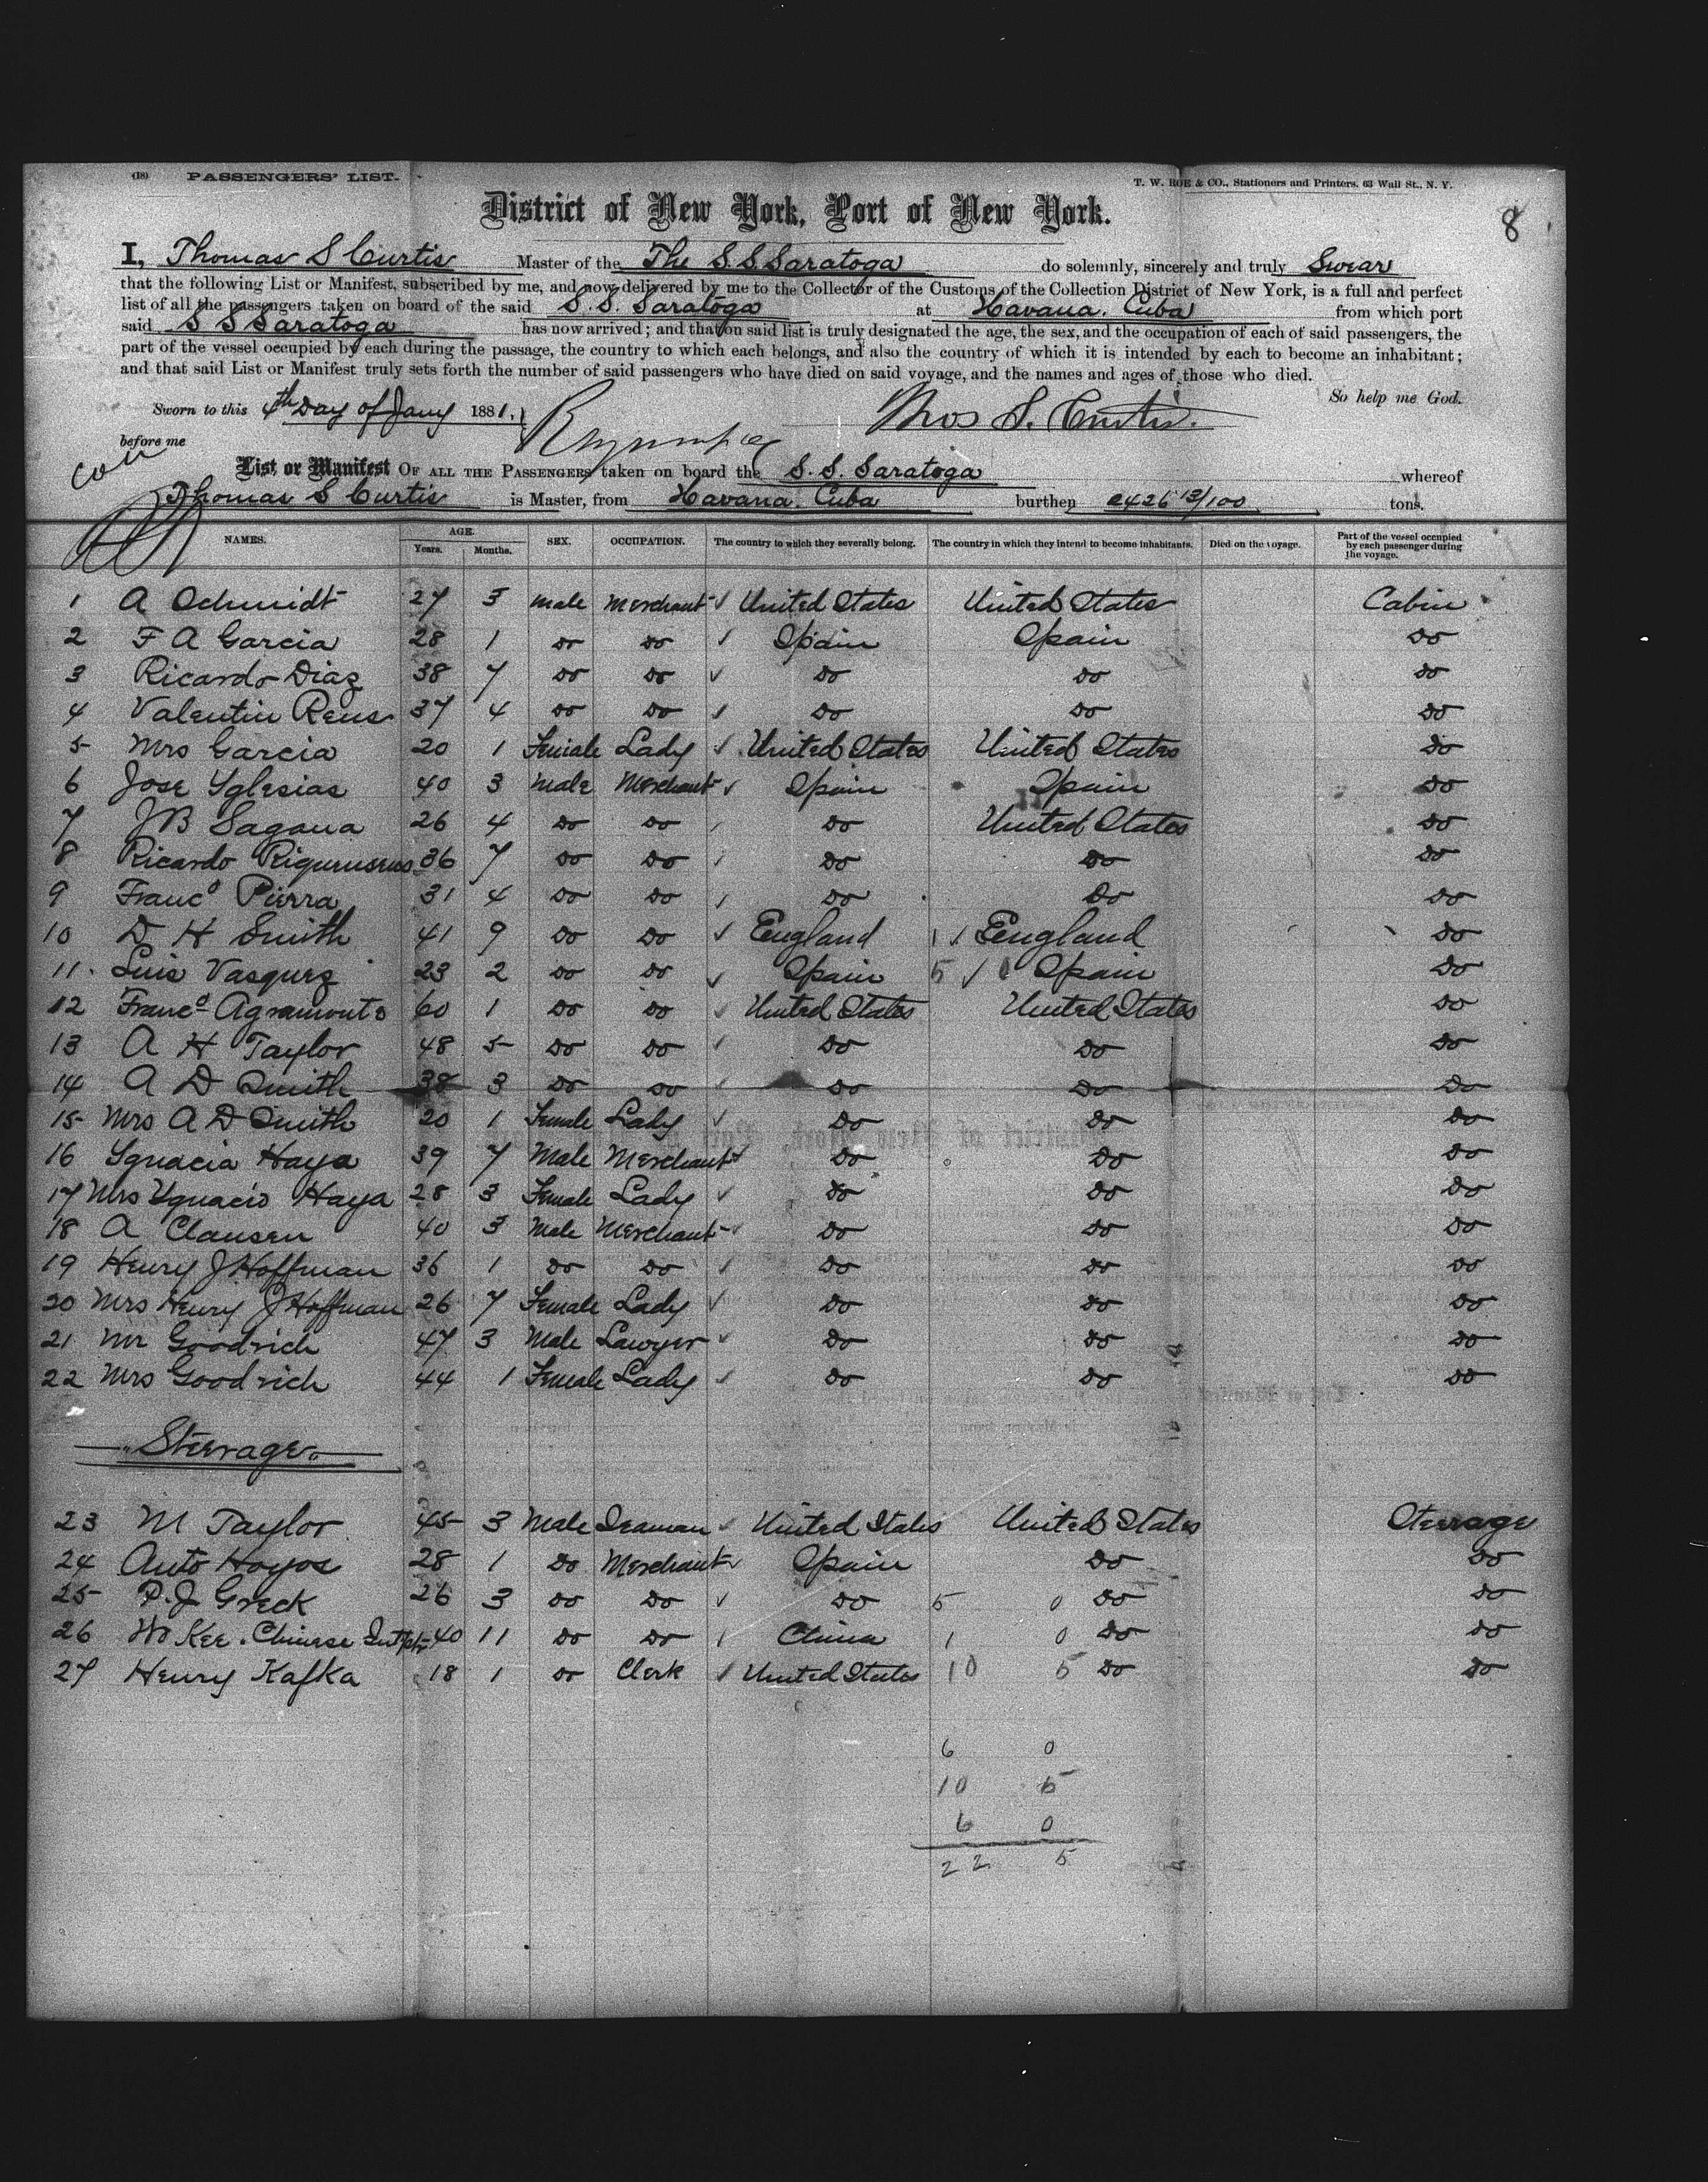 (18) PASSENGERS' LIST.
T. W. ROE & CO., Stationers and Printers, 63 Wall St., N. Y.
District of New York, Port of New York.
8
I, Thomas S Curtis Master of the The S.S. Saratoga do solemnly, sincerely and truly Swear
that the following List or Manifest, subscribed by me, and now delivered by me to the Collector of the Customs of the Collection District of New York, is a full and perfect
list of all the passengers taken on board of the said S.S. Saratoga at Havana. Cuba from which port
said S S Saratoga has now arrived; and that on said list is truly designated the age, the sex, and the occupation of each of said passengers, the
part of the vessel occupied by each during the passage, the country to which each belongs, and also the country of which it is intended by each to become an inhabitant;
and that said List or Manifest truly sets forth the number of said passengers who have died on said voyage, and the names and ages of those who died.
So help me God.
Sworn to this 4th Day of Jany 1881. Thos S. Curtis.
before me
List or Manifest OF ALL THE PASSENGERS taken on board the S.S. Saratoga whereof
Thomas S Curtis is Master, from Havana. Cuba burthen 2426 13/100 tons.
NAMES. AGE. Years. Months. SEX. OCCUPATION. The country to which they severally belong. The country in which they intend to become inhabitants. Died on the voyage. Part of the vessel occupied by each passenger during the voyage.
1 A Schmidt 27 3 Male Merchant United States United States Cabin
2 F A Garcia 28 1 Do Do Spain Spain Do
3 Ricardo Diaz 38 7 Do Do Do Do Do
4 Valentin Rens 37 4 Do Do Do Do Do
5 Mrs Garcia 20 1 Female Lady United States United States Do
6 Jose Yglesias 40 3 Male Merchant Spain Spain Do
7 J B Sagana 26 4 Do Do Do United States Do
8 Ricardo 36 7 Do Do Do Do Do
9 Franco Pierra 31 4 Do Do Do Do Do
10 D H Smith 41 9 Do Do England 1 England Do
11. Luis Vasquez 23 2 Do Do Spain 5 0 Spain Do
12 Franco Agramonte 60 1 Do Do United States United States Do
13 A H Taylor 48 5 Do Do Do Do Do
14 A D Smith 38 3 Do Do Do Do Do
15 Mrs A D Smith 20 1 Female Lady Do Do Do
16 Ygnacia Haya 39 7 Male Merchant Do Do Do
17 Mrs Ygnacio Haya 28 3 Female Lady Do Do Do
18 A Clausen 40 3 Male Merchant Do Do Do
19 Henry J Hoffman 36 1 Do Do Do Do Do
20 Mrs Henry J Hoffman 26 7 Female Lady Do Do Do
21 Mr Goodrich 47 3 Male Lawyer Do Do Do
22 Mrs Goodrich 44 1 Female Lady Do Do Do
"Steerage"
23 M Taylor 45 3 Male Seaman United States United States Steerage
24 Anto Hoyos 28 1 Do Merchant Spain Do Do
25 P. J Greck 26 3 Do Do Do 5 0 Do Do
26 Wo Kee. Chinese Intptr 40 11 Do Do China 1 0 Do Do
27 Henry Kafka 18 1 Do Clerk United States 10 5 Do Do
6 0
10 5
6 0
22 5